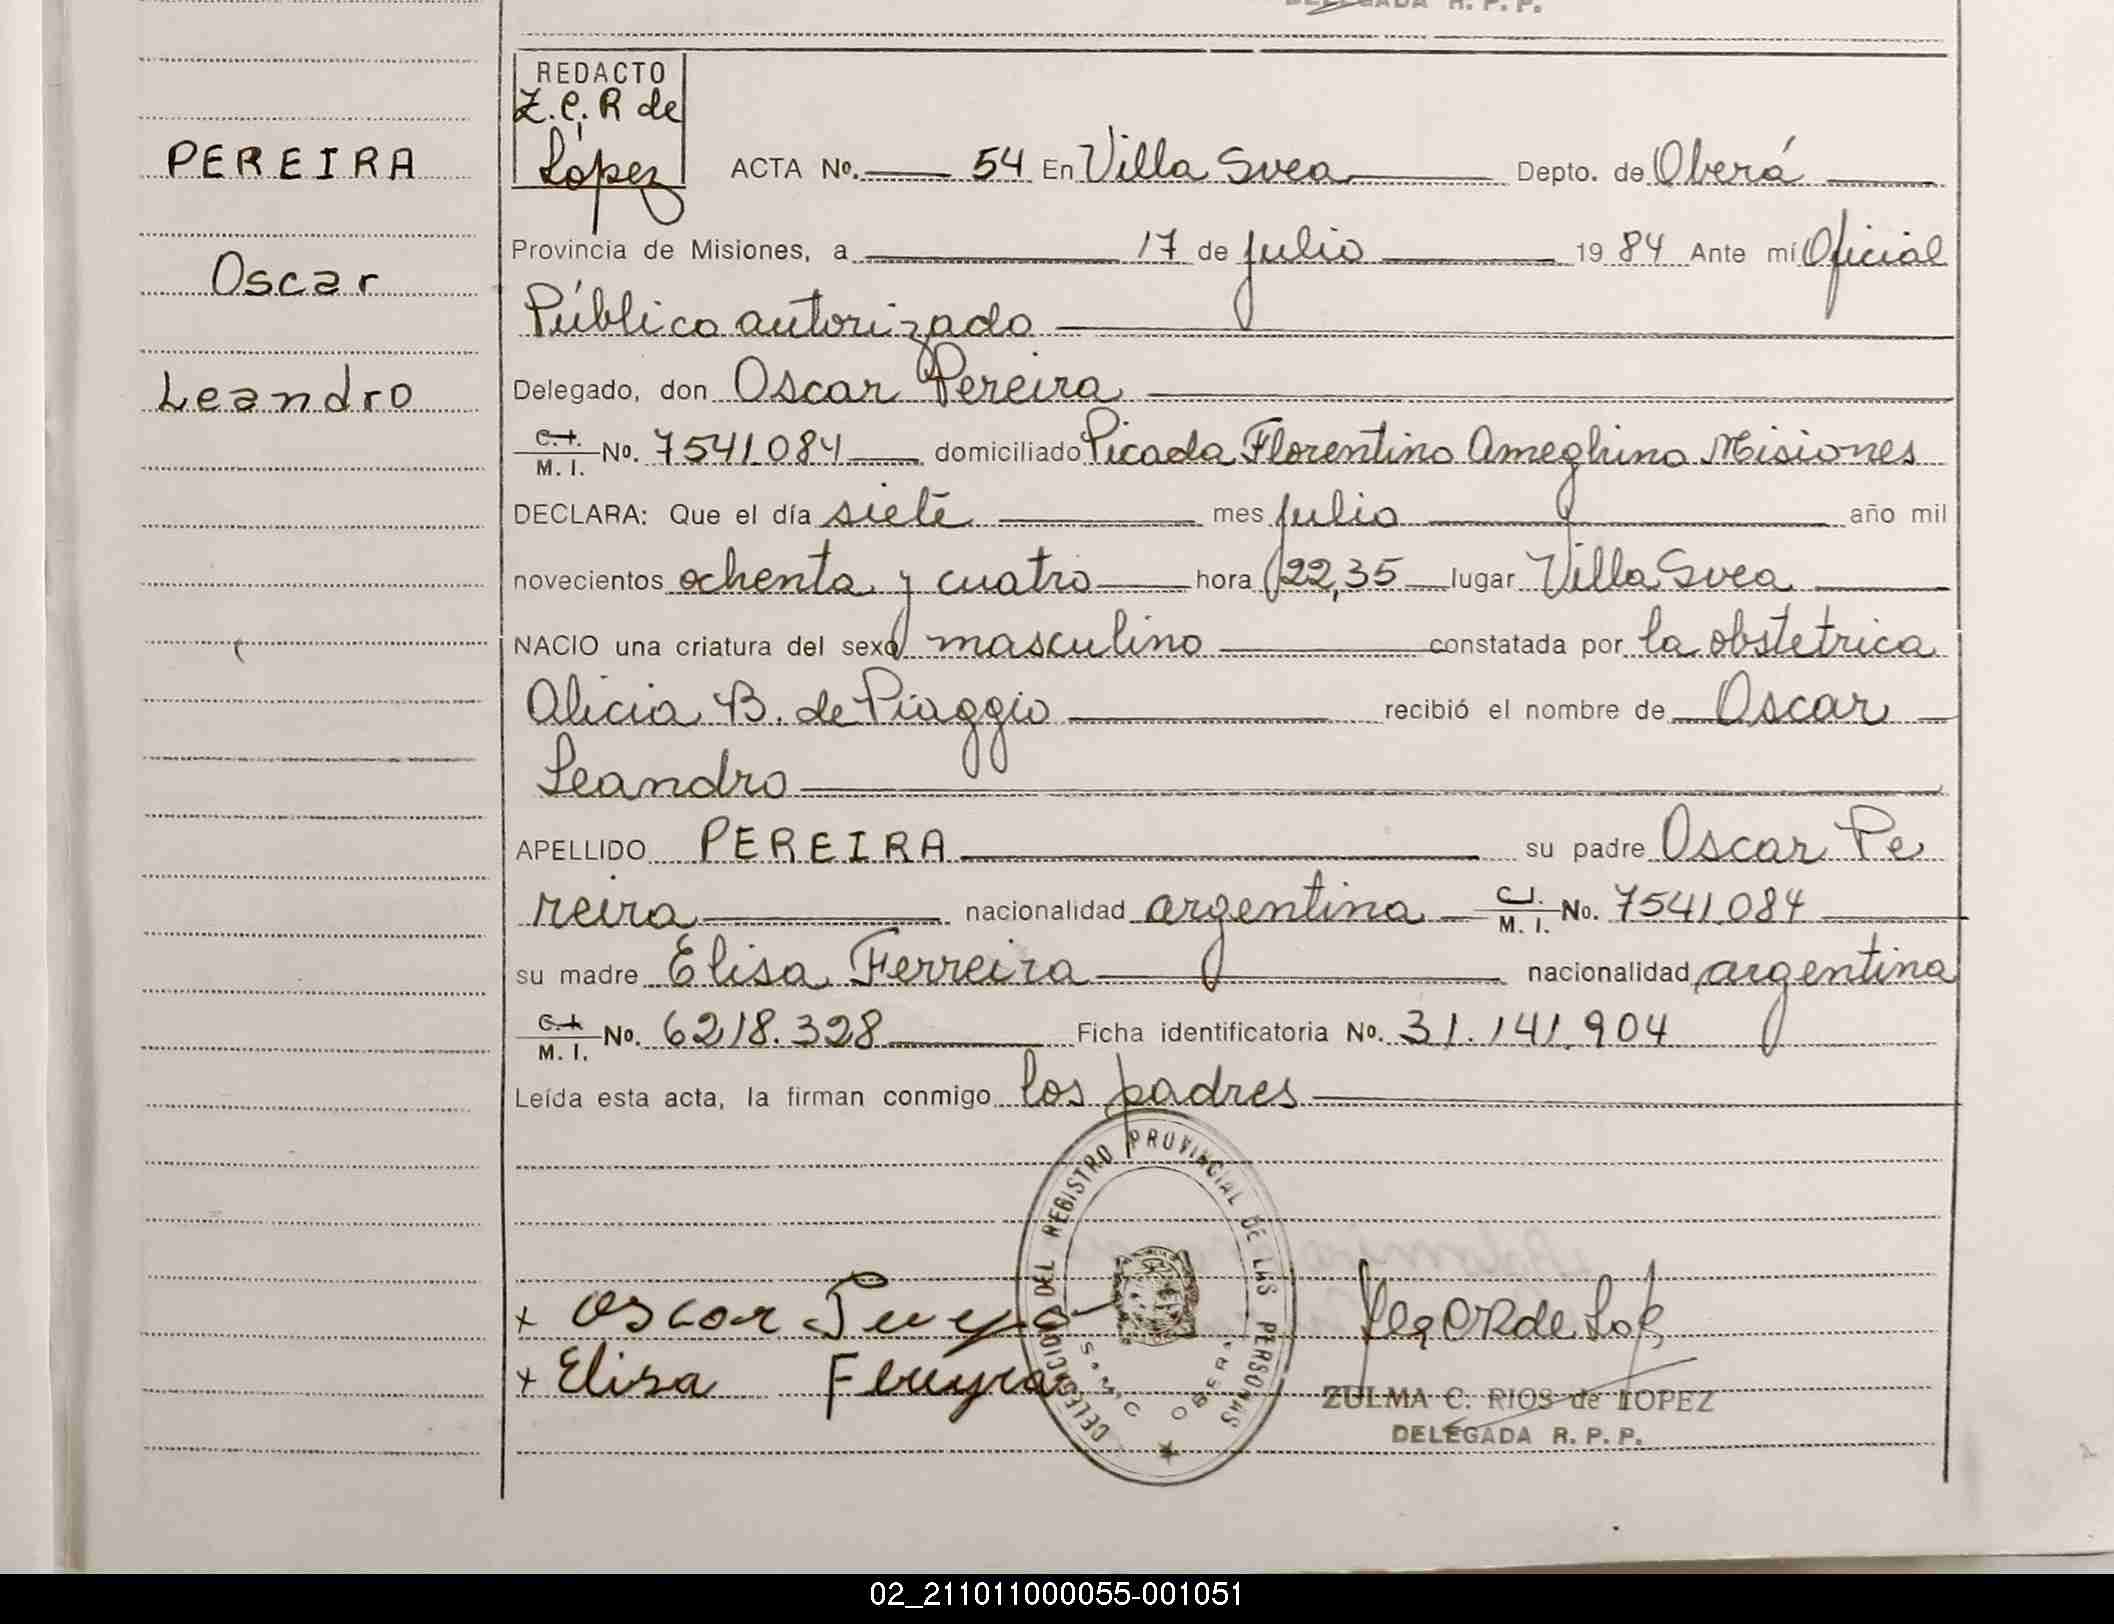 DELEGADA R. P. P.
REDACTO
Z. C. R de
López
PEREIRA
Oscar
Leandro
ACTA No. 54 En Villa Svea Depto. de Oberá
Provincia de Misiones, a 17 de julio 1984 Ante mí Oficial
Público autorizado
Delegado, don Oscar Pereira
C.I. M. I. No. 7541.084 domiciliado Picada Florentino Ameghino Misiones
DECLARA: Que el día siete mes julio año mil
novecientos ochenta y cuatro hora 22,35 lugar Villa Svea
NACIO una criatura del sexo masculino constatada por la obstetrica
Alicia B. de Piaggio recibió el nombre de Oscar
Leandro
APELLIDO PEREIRA su padre Oscar Pe
reira nacionalidad argentina C.I. M. I. No. 7541.084
su madre Elisa Ferreira nacionalidad argentina
C.I. M. I. No. 6218.328 Ficha identificatoria No. 31.141.904
Leída esta acta, la firman conmigo los padres
DELEGACION DEL REGISTRO PROVINCIAL DE LAS PERSONAS
OBERA
x oscar
x Elisa
ZULMA C. RIOS de LOPEZ
DELEGADA R. P. P.
02_211011000055-001051